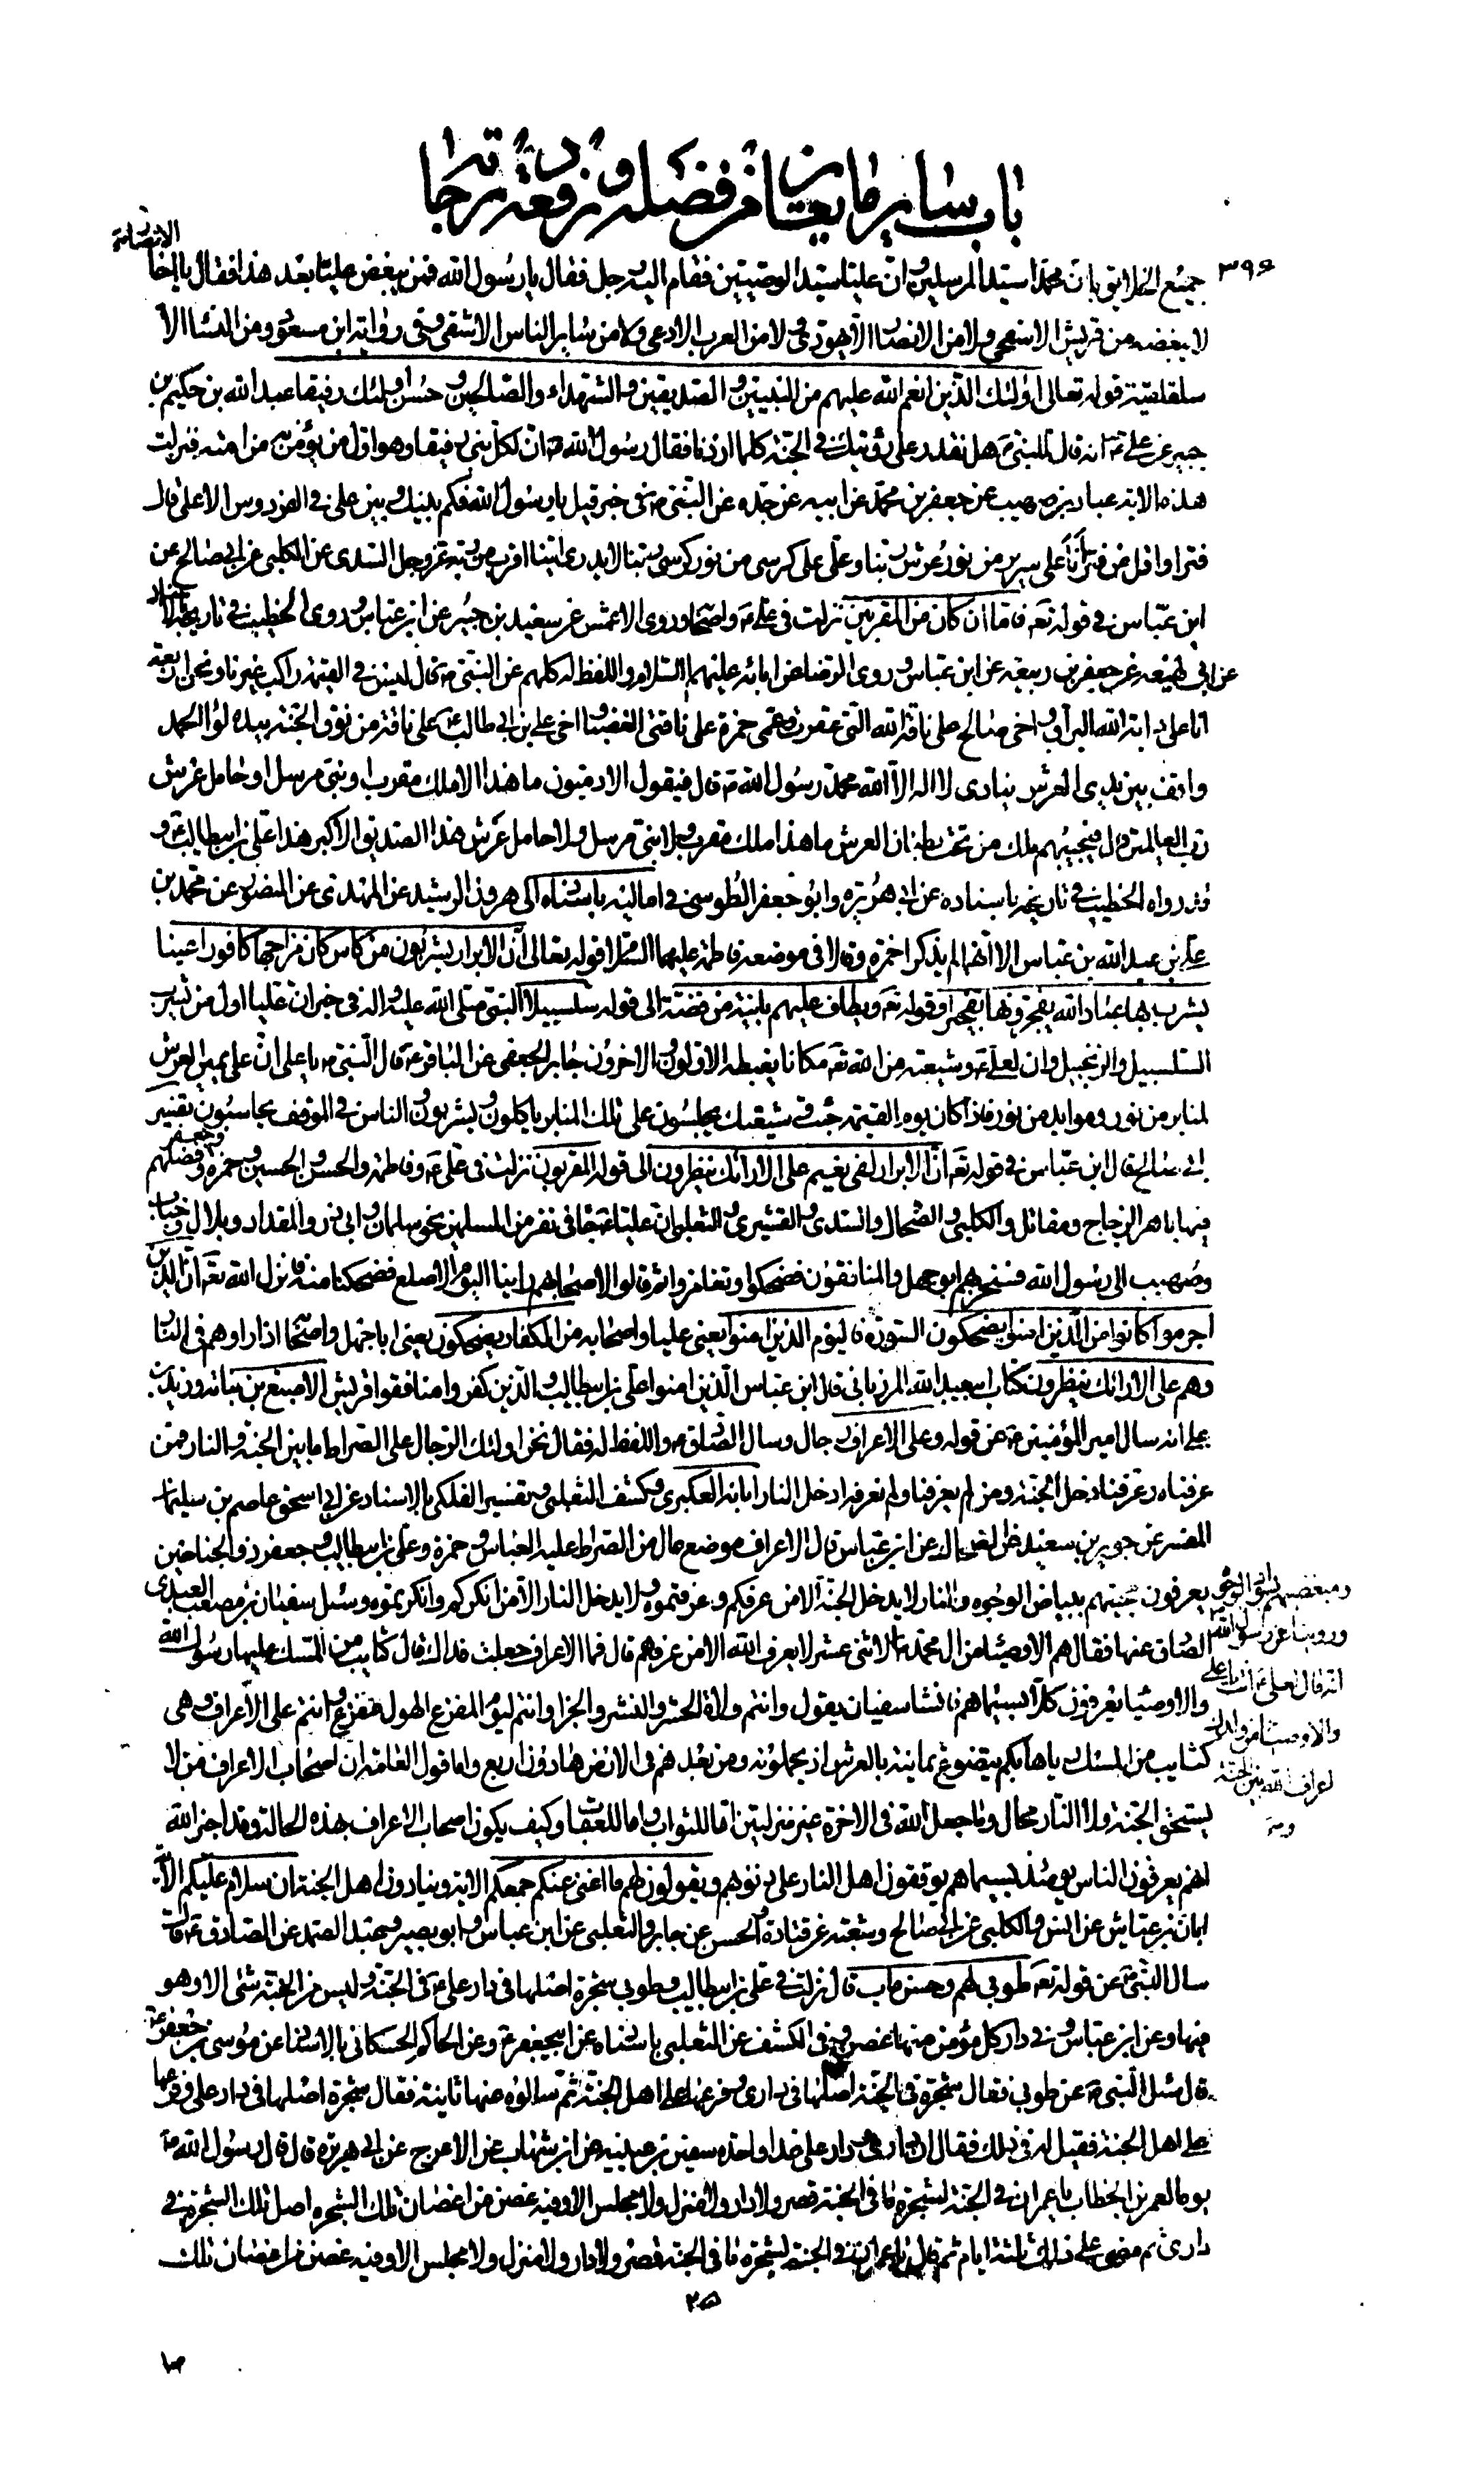 باب سائر ما يتعلق من فضله ورفعة درجاته
٣٩۶
جميع الخلائق بان محمدا سيد المرسلين وان عليا سيد الوصيين فقام اليه رجل فقال يا رسول الله فمن يبغض عليا بعد هذا فقال يا اخا الانصار
لا يبغضه من قريش الا سفحى ولا من الانصار الا يهودى ولا من العرب الا دعى ولا من سائر الناس الا شقى وفى رواية ابن مسعود ومن النساء الا
سلقلقية قوله تعالى اولئك الذين انعم الله عليهم من النبيين والصديقين والشهداء والصالحين وحسن اولئك رفيقا عبد الله بن حكيم بن
جبير عن على ع انه قال للنبى ص هل نقدر على رؤيتك فى الجنة كلما اردنا فقال رسول الله ص ان لكل نبى رفيقا وهو اول من يؤمن به من امته فنزلت
هذه الاية عباد بن صهيب عن جعفر بن محمد عن ابيه عن جده عن النبى ص فى خبر قيل يا رسول الله فكم بينك وبين على فى الفردوس الاعلى قال
فتر او اقل من فتر انا على سرير من نور عرش ربنا وعلى على كرسى من نور كرسى ربنا لا يدرى اينا اقرب من ربه عز وجل السدى عن الكلبى عن ابى صالح عن
ابن عباس فى قوله تعه فاما ان كان من المقربين نزلت فى على ع واصحابه وروى الاعمش عن سعيد بن جبير عن ابن عباس وروى الخطيب فى تاريخه بالاسناد
عن ابى لهيعه عن جعفر بن ربيعه عن ابن عباس وروى الرضا عن ابائه عليهم السلام واللفظ له كلهم عن النبى ص قال ليس فى القيمة راكب غيرنا ونحن اربعة
انا على دابة الله البراق واخى صالح على ناقة الله التى عقرت وعمى حمزة على ناقتى الغضباء واخى على بن ابى طالب ع على ناقة من نوق الجنة بيده لواء الحمد
واقف بين يدى العرش ينادى لا اله الا الله محمد رسول الله ص قال فيقول الادميون ما هذا الا ملك مقرب او نبى مرسل او حامل عرش
رب العالمين قال فيجيبهم ملك من تحت بطنان العرش ما هذا ملك مقرب ولا نبى مرسل ولا حامل عرش هذا الصديق الاكبر هذا على بن ابيطالب ع و
قد رواه الخطيب فى تاريخه باسناده عن ابى هريرة وابو جعفر الطوسى فى اماليه باسناده الى هرون الرشيد عن المهدى عن المنصور عن محمد بن
على بن عبد الله بن عباس الا انهما لم يذكرا حمزة وقالا فى موضعه فاطمة عليهما السلام قوله تعالى ان الابرار يشربون من كاس كان مزاجها كافورا عينا
يشرب بها عباد الله يفجرونها تفجيرا وقوله تعه ويطاف عليهم بانية من فضة الى قوله سلسبيلا النبى صلى الله عليه واله فى خبر ان عليا اول من يشرب
السلسبيل والزنجبيل وان لعلى ع وشيعته من الله تعه مكانا يغبطه الاولون والاخرون جابر الجعفى عن الباقر ع قال النبى ص يا على ان على يمين العرش
لمنابر من نور وموايد من نور فاذا كان يوم القيمة جئت وشيعتك يجلسون على تلك المنابر ياكلون ويشربون والناس فى الموقف يحاسبون تفسير
ابى صالح قال ابن عباس فى قوله تعه ان الابرار لفى نعيم على الارائك ينظرون الى قوله المقربون نزلت فى على ع وفاطمة والحسن والحسين وحمزة وجعفر وفضلهم
فيها باهر الزجاج ومقاتل والكلبى والضحاك والسدى والقشيرى والثعلبى ان عليا ع جاء فى نفر من المسلمين نحو سلمان وابى ذر والمقداد وبلال وخباب
وصهيب الى رسول الله فسخر بهم ابو جهل والمنافقون فضحكوا وتغامزوا ثم قالوا لاصحابهم راينا اليوم الاصلع فضحكنا منه فانزل الله تعه ان الذين
اجرموا كانوا من الذين امنوا يضحكون السورة فاليوم الذين امنوا يعنى عليا واصحابه من الكفار يضحكون يعنى ابا جهل واصحابه اذا راوهم فى النار
وهم على الارائك ينظرون كتاب ابى عبيد الله المرزبانى قال ابن عباس الذين امنوا على بن ابيطالب والذين كفروا منافقوا قريش الاصبغ بن نباته وزيد بن
على انه سال امير المؤمنين ع عن قوله وعلى الاعراف رجال وسال الصادق ع واللفظ له فقال نحن اولئك الرجال على الصراط ما بين الجنة والنار فمن
عرفناه وعرفنا دخل الجنة ومن لم يعرفنا ولم نعرفه ادخل النار ابانة العكبرى وكشف الثعلبى وتفسير الفلكى بالاسناد عن ابى اسحق عاصم بن سليمان
المفسر عن جويبر بن سعيد عن الضحاك عن ابن عباس قال الاعراف موضع عال من الصراط عليه العباس وحمزة وعلى بن ابيطالب وجعفر ذو الجناحين
يعرفون محبيهم ببياض الوجوه ومبغضيهم بسواد الوجوه وروينا عن رسول الله ص انه قال لعلى ع انت يا على والاوصياء من ولدك اعراف الله بين الجنة والنار لا يدخل الجنة الا من عرفكم وعرفتموه ولا يدخل النار الا من انكركم وانكرتموه وسئل سفيان بن مصعب العبدى
الصادق عنها فقال هم الاوصياء من ال محمد ص الاثنى عشر لا يعرف الله الا من عرفهم قال فما الاعراف جعلت فداك قال كثايب من المسك عليها رسول الله
والاوصياء يعرفون كلا بسيماهم فانشا سفيان يقول وانتم ولاة الحشر والنشر والجزا وانتم ليوم المفزع الهول مفزع وانتم على الاعراف وهى
كثايب من المسك رياها بكم يتضوع ثمانية بالعرش اذ يحملونه ومن بعدهم فى الارض هادون اربع واما قول العامة ان اصحاب الاعراف من لا
يستحق الجنة ولا النار محال وما جعل الله فى الاخرة غير منزلتين اما للثواب واما للعقاب وكيف يكون اصحاب الاعراف بهذه الحالة وقد اخبر الله
انهم يعرفون الناس يومئذ بسيماهم يوقفون اهل النار على ذنوبهم ويقولون لهم ما اغنى عنكم جمعكم الاية وينادون اهل الجنة ان سلام عليكم الاية
ابان بن عياش عن انس والكلبى عن ابى صالح وشعبة عن قتادة والحسن عن جابر والثعلبى عن ابن عباس وابو بصير وعبد الصمد عن الصادق ع قالت
سال النبى ص عن قوله تعه طوبى لهم وحسن ماب قال نزلت فى على بن ابيطالب وطوبى شجرة اصلها فى دار على ع فى الجنة وليس من الجنة شئ الا وهو
فيها وعن ابن عباس وفى دار كل مؤمن منها غصن وفى الكشف عن الثعلبى باسناده عن ابى جعفر ع وعن الحاكم الحسكانى بالاسناد عن موسى بن جعفر ع
قال سئل النبى ص عن طوبى فقال شجرة فى الجنة اصلها فى دارى وفرعها على اهل الجنة ثم سالوه عنها ثانية فقال شجرة اصلها فى دار على وفرعها
على اهل الجنة فقيل له فى ذلك فقال ان دارى ودار على غدا واحده سفين بن عيينه عن ابن شهاب عن الاعرج عن ابى هريرة قال قال رسول الله ص
يوما لعمر بن الخطاب يا عمر ان فى الجنة لشجرة ما فى الجنة قصر ولا دار ولا منزل ولا مجلس الا وفيه غصن من اغصان تلك الشجره اصل تلك الشجرة فى
دارى ثم مضى على ذلك ثلثة ايام ثم قال يا عمر ان فى الجنة لشجرة ما فى الجنة قصر ولا دار ولا منزل ولا مجلس الا وفيه غصن من اغصان تلك